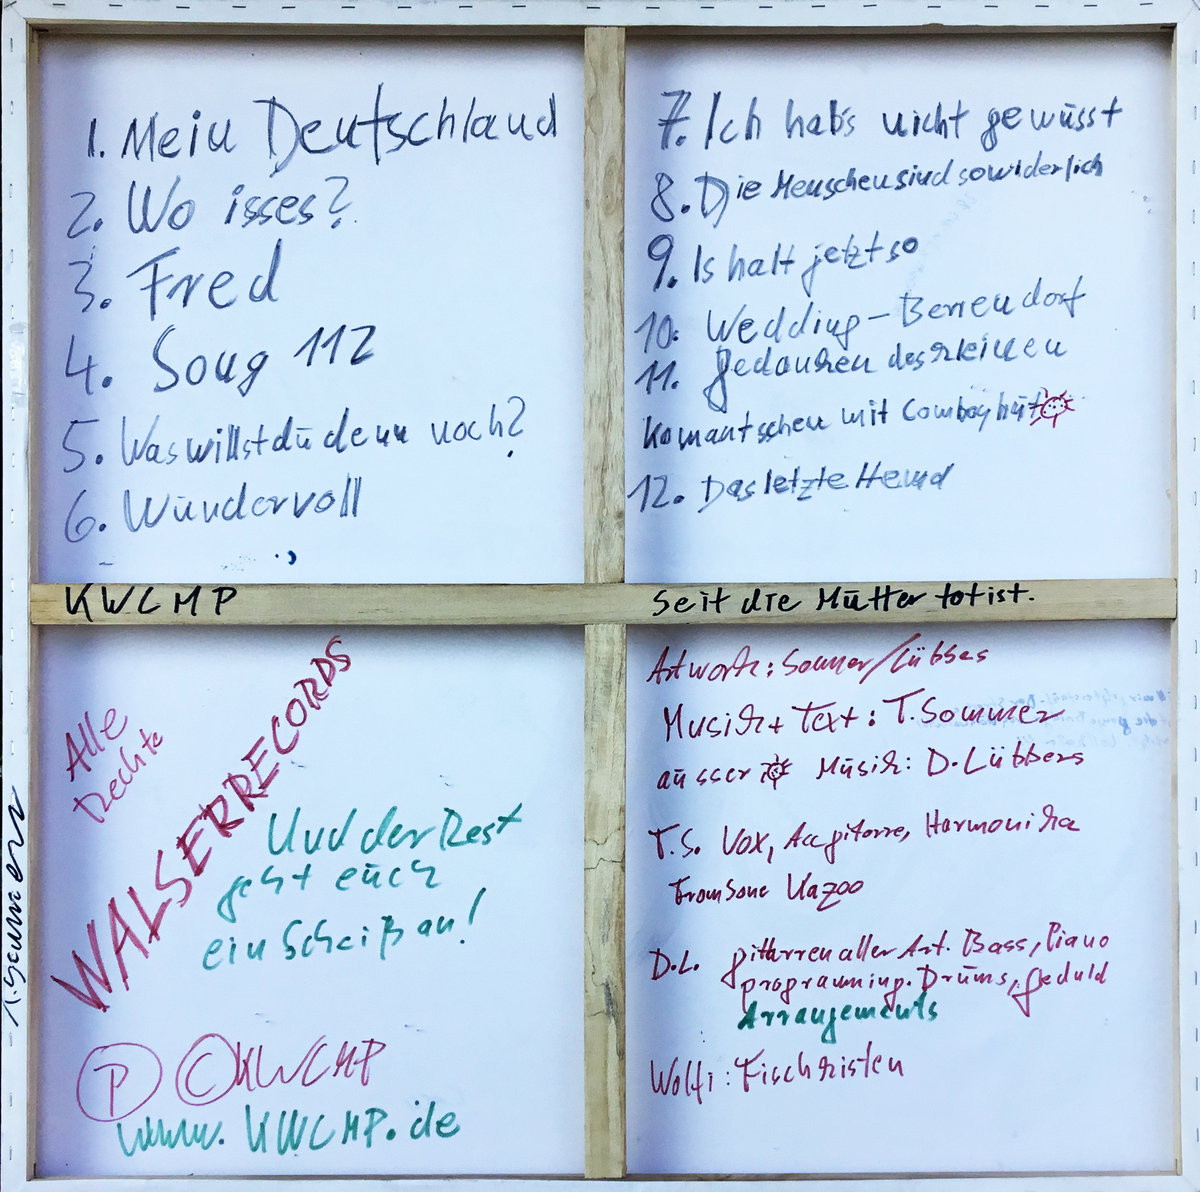 1. Mein Deutschland
2. Wo isses?
3. Fred
4. Song 112
5. Was willst du denn noch?
6. Wundervoll
7. Ich hab's nicht gewusst
8. Die Menschen sind so widerlich
9. Is halt jetzt so
10. Wedding - Berrendorf
11. Gedanken des kleinen
Komantschen mit Comboyhut
12. Das letzte Hemd
KWCMP
Seit die Mutter tot ist.
Alle
Rechte
WALSERRECORDS
Und der Rest
geht euch
ein Scheiß an!
P C KWCMP
www.KWCMP.de
Artwork: Sommer/Lübbes
Musik + Text: T. Sommer
ausser Musik: D. Lübbers
T.S. Vox, Acc gitorre, Harmonika
Trombone Kazoo
D.L. gitarren aller Art. Bass, Piano
programming. Drums, Geduld
Arrangements
Wolfi: Fischkisten
T. Sommer